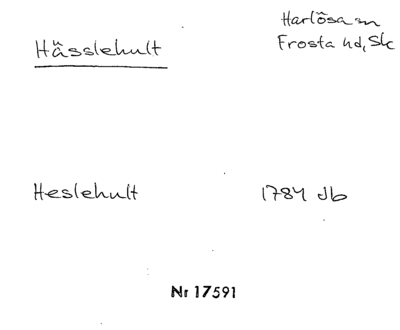 Hässlehult
Harlösa sn
Frosta hd, Sk
Heslehult 1784 db
Nr 17591